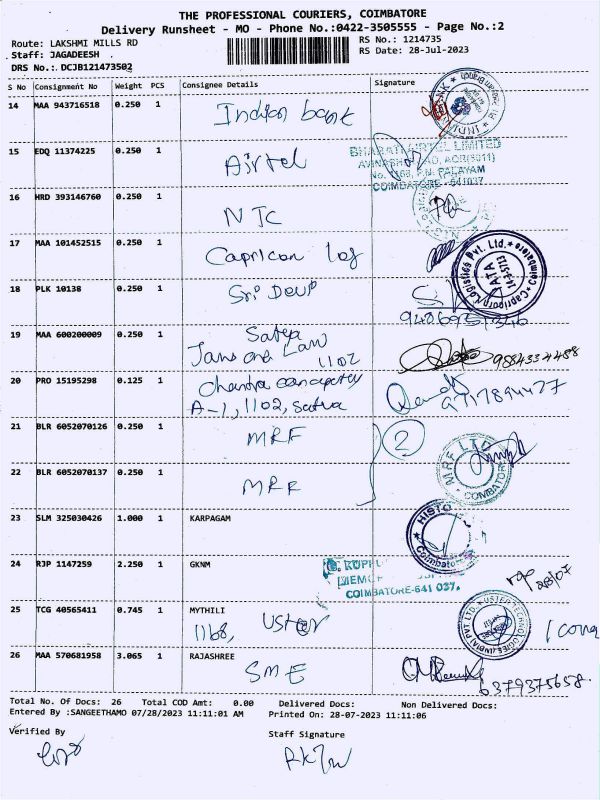 THE PROFESSIONAL COURIERS, COIMBATORE
Delivery Runsheet - MO - Phone No.:0422-3505555 - Page No.:2
Route: LAKSHMI MILLS RD
RS No.: 1214735
Staff: JAGADEESH
RS Date: 28-Jul-2023
DRS No.: DCJB121473502
S No Consignment No Weight PCS Consignee Details Signature
14 MAA 943716518 0.250 1 Indian bank
15 EDQ 11374225 0.250 1 Airtel
BHARATI AIRTEL LIMITED
AVINASHI ROAD, AOR(3011)
No. 1168, P.N. PALAYAM
COIMBATORE - 641037
16 HRD 393146760 0.250 1 NJC
17 MAA 101452515 0.250 1 Capricon log
Capricorn Logistics Pvt. Ltd. Coimbatore
18 PLK 10138 0.250 1 Sri Devi
19 MAA 600200009 0.250 1 Satya
Jams and Law
1102
9884334488
20 PRO 15195298 0.125 1 Chandra
A-1, 1102, Satya
21 BLR 6052070126 0.250 1 MRF 2
22 BLR 6052070137 0.250 1 MRF
MRF LTD COIMBATORE
23 SLM 325030426 1.000 1 KARPAGAM
HISTO Coimbatore
24 RJP 1147259 2.250 1 GKNM
G. KUPPU
MEMO
COIMBATORE-641 037.
28/07
25 TCG 40565411 0.745 1 MYTHILI
1168, Uster
USTER TECHNOLOGIES (INDIA) PVT LTD
26 MAA 570681958 3.065 1 RAJASHREE
SME
6379375658.
Total No. Of Docs: 26 Total COD Amt: 0.00 Delivered Docs: Non Delivered Docs:
Entered By :SANGEETHAMO 07/28/2023 11:11:01 AM Printed On: 28-07-2023 11:11:06
Verified By Staff Signature